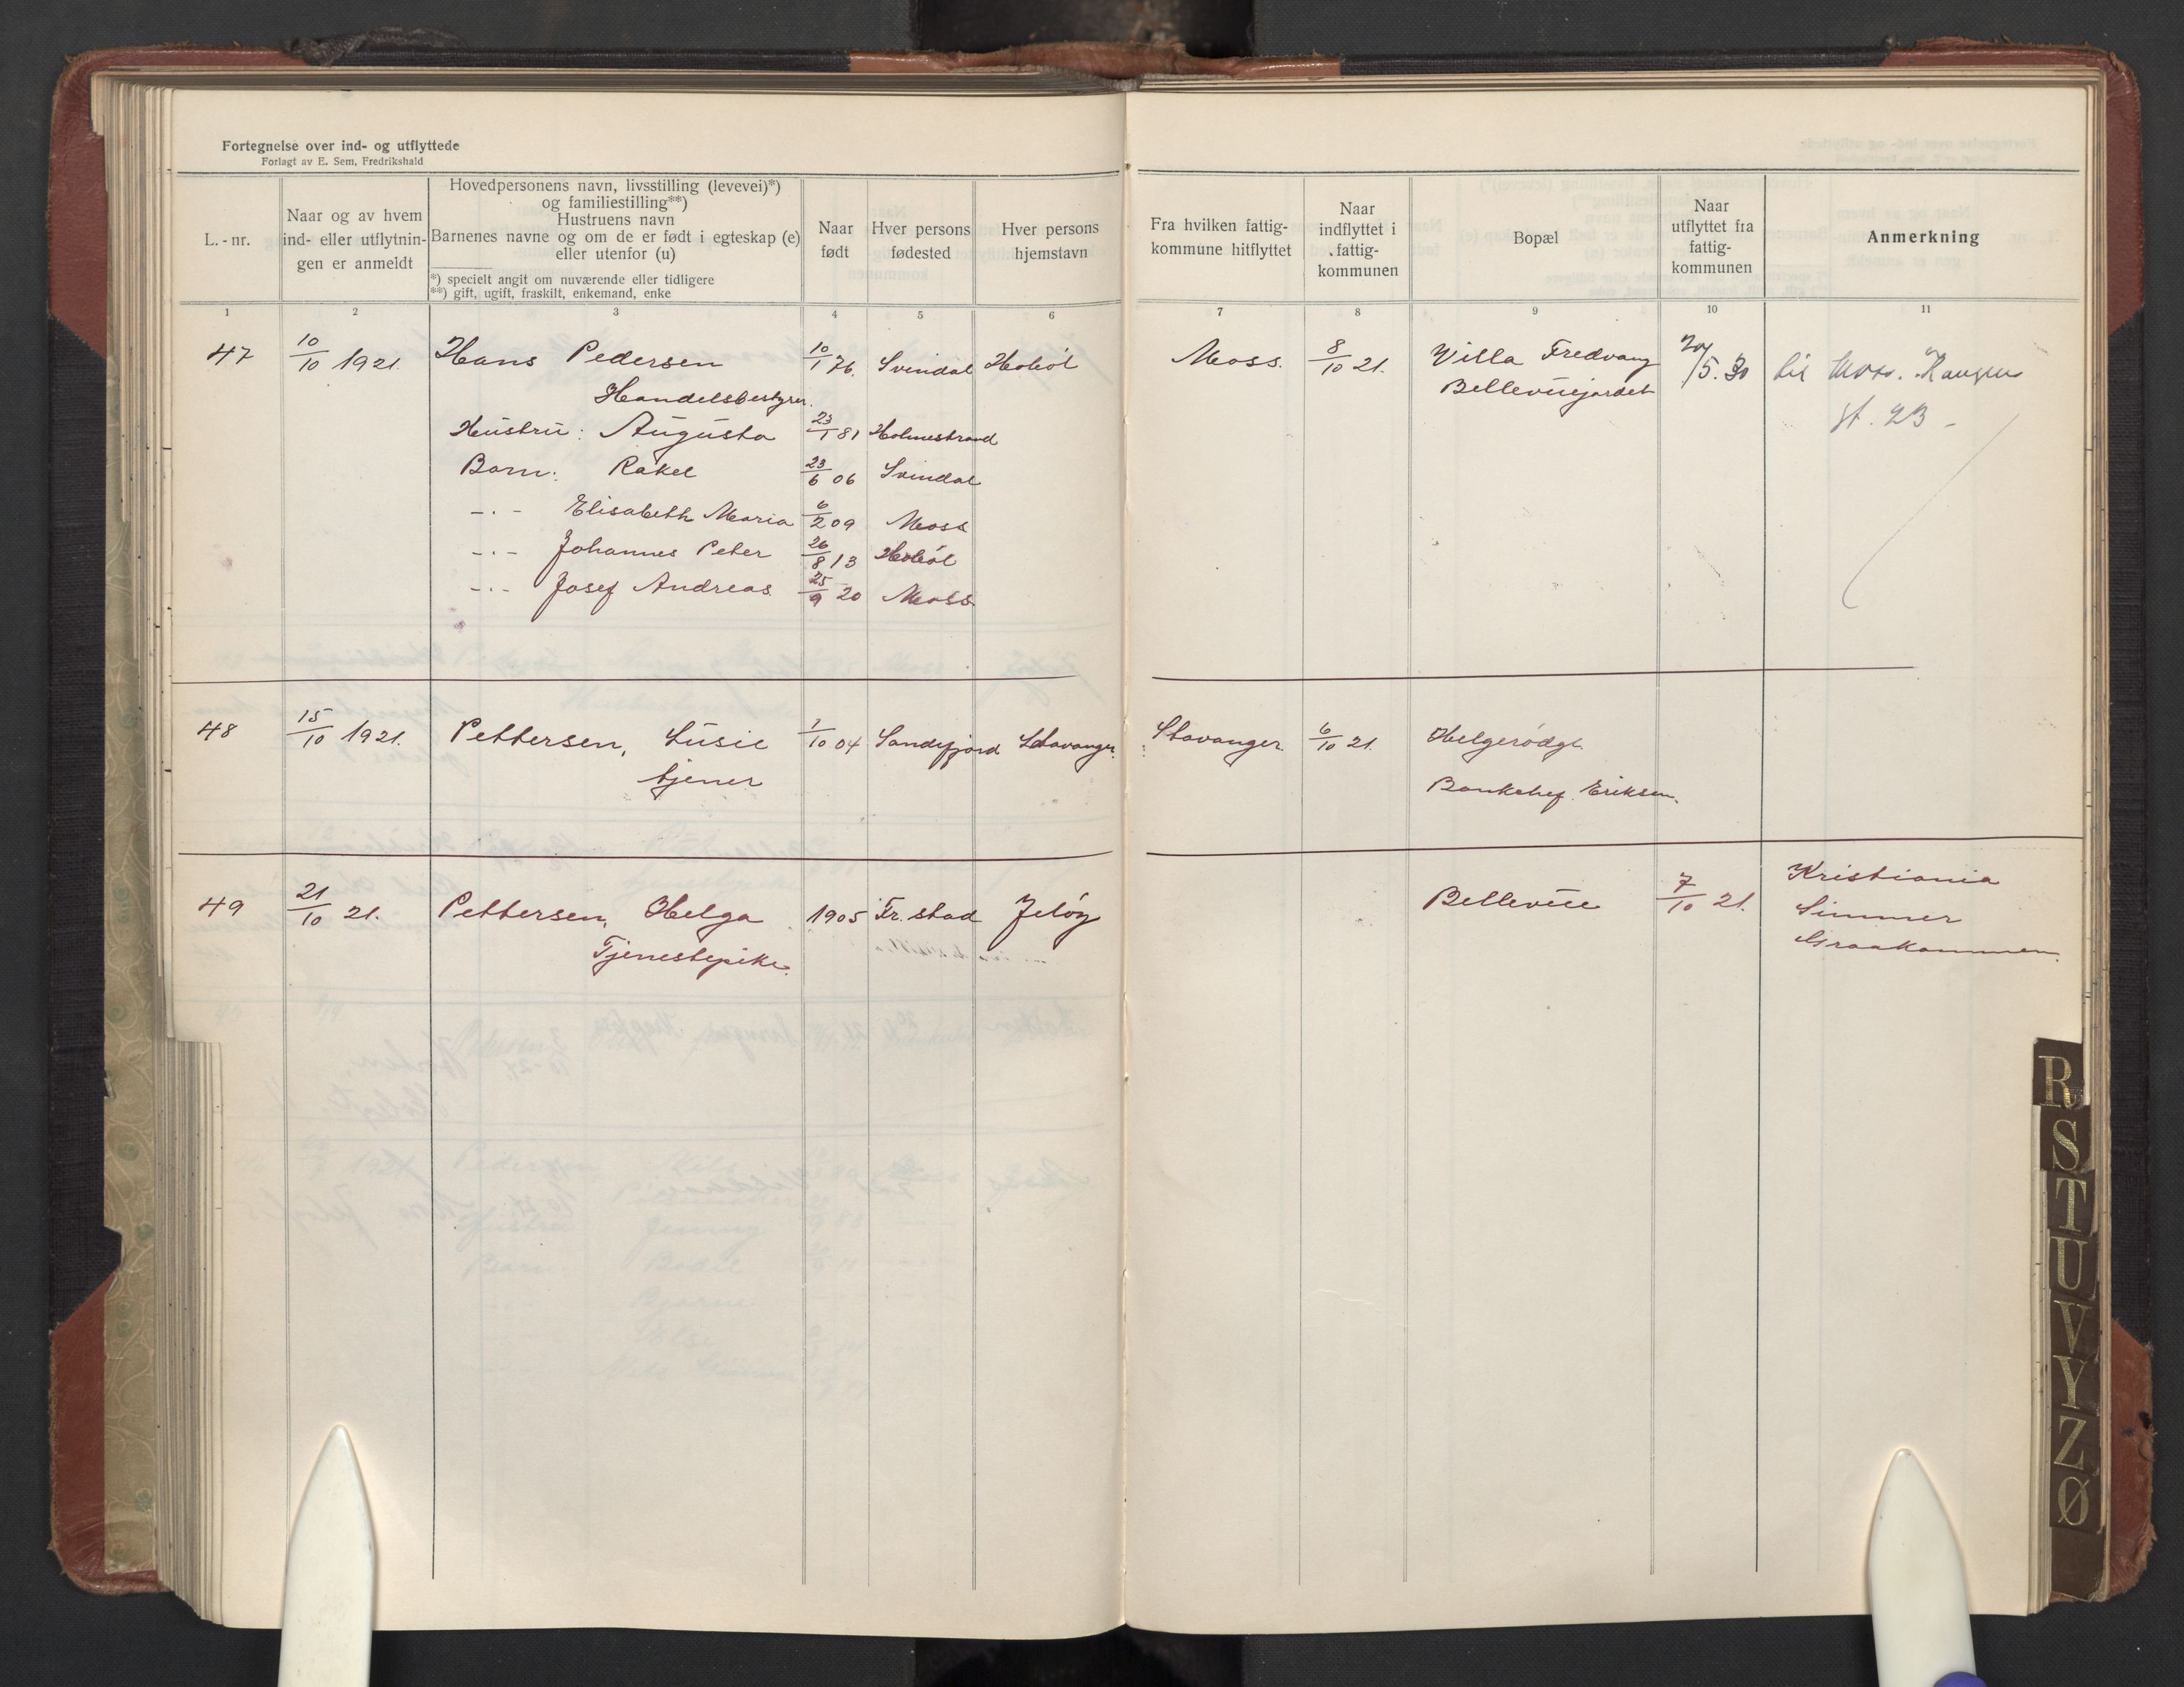 Fortegnelse over ind- og utflyttede
Forlagt av E. Sem, Fredrikshald
L.-nr.
Naar og av hvem
ind- eller utflytnin-
gen er anmeldt
Hovedpersonens navn, livsstilling (levevei)*)
og familiestilling**)
Hustruens navn
Barnenes navne og om de er født i egteskap (e)
eller utenfor (u)
*) specielt angit om nuværende eller tidligere
**) gift, ugift, fraskilt, enkemand, enke
Naar
født
Hver persons
fødested
Hver persons
hjemstavn
Fra hvilken fattig-
kommune hitflyttet
Naar
indflyttet i
fattig-
kommunen
Bopæl
Naar
utflyttet fra
fattig-
kommunen
Anmerkning
1 2 3 4 5 6 7 8 9 10 11
47 10/10 1921. Hans Pedersen 10/1 76. Svindal Hobøl Moss. 8/10 21. Villa Fredvang 20/5. 30 til Moss.
Handelsbestyrer. Bellevuejordet gt. 23 -
Hustru: Augusta 23/1 81 Holmestrand
Barn: Rakel 23/6 06 Svindal
-.- Elisabeth Maria 6/2 09 Moss
-.- Johannes Peter 26/8 13 Hobøl
-.- Josef Andreas 25/9 20 Moss
48 15/10 1921. Pettersen, Lusie 1/10 04 Sandefjord Stavanger. Stavanger. 6/10 21. Helgerødgt.
tjener Bankchef Eriksen.
49 21/10 21. Pettersen, Helga 1905 Fr.stad Jeløy Bellevue 7/10 21. Kristiania
Tjenestepike. Simmer
Graakammen.
R
S
T
U
V
Y
Z
Ø